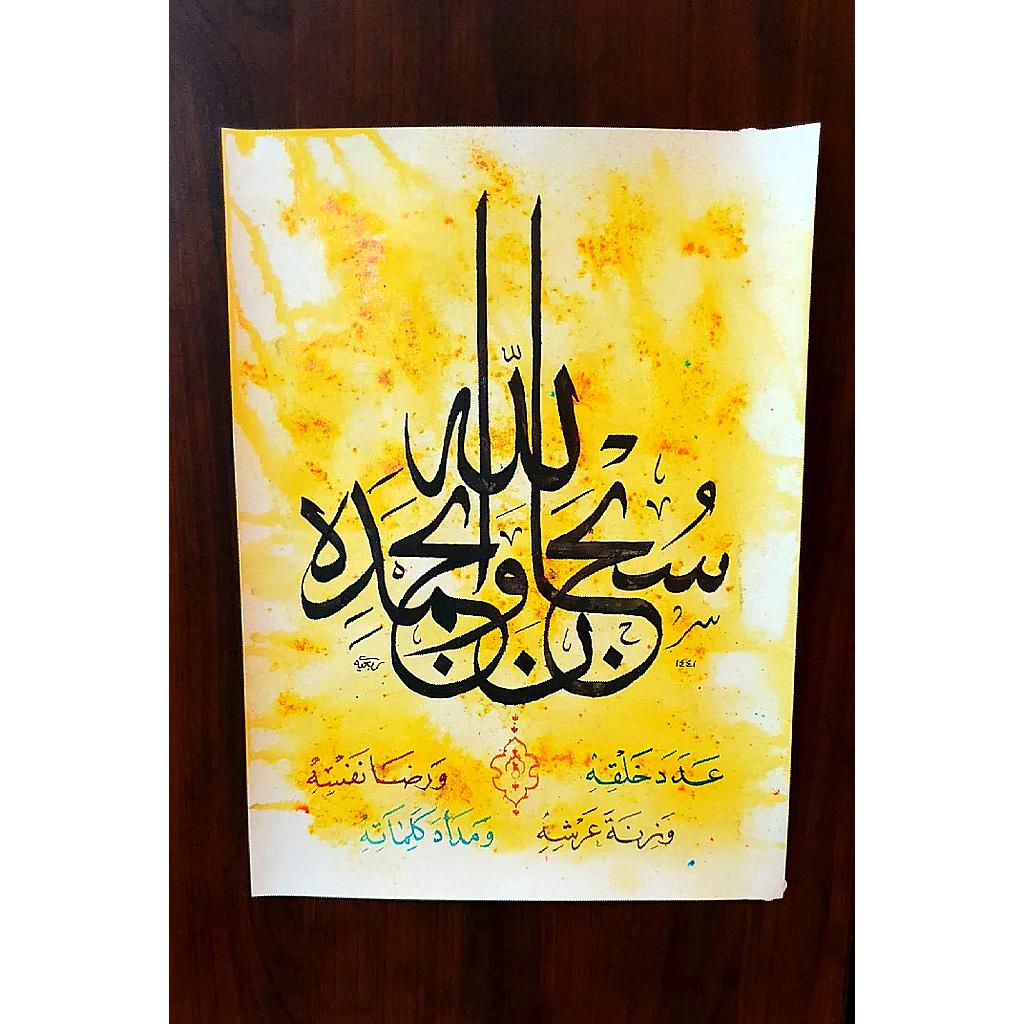 سُبْحَانَ اللّٰه وَبِحَمْدِه
١٤٤١
عَدَدَ خَلْقِهِ وَرِضَا نَفْسِهِ
وَزِنَةَ عَرْشِهِ وَمِدَادَ كَلِمَاتِهِ